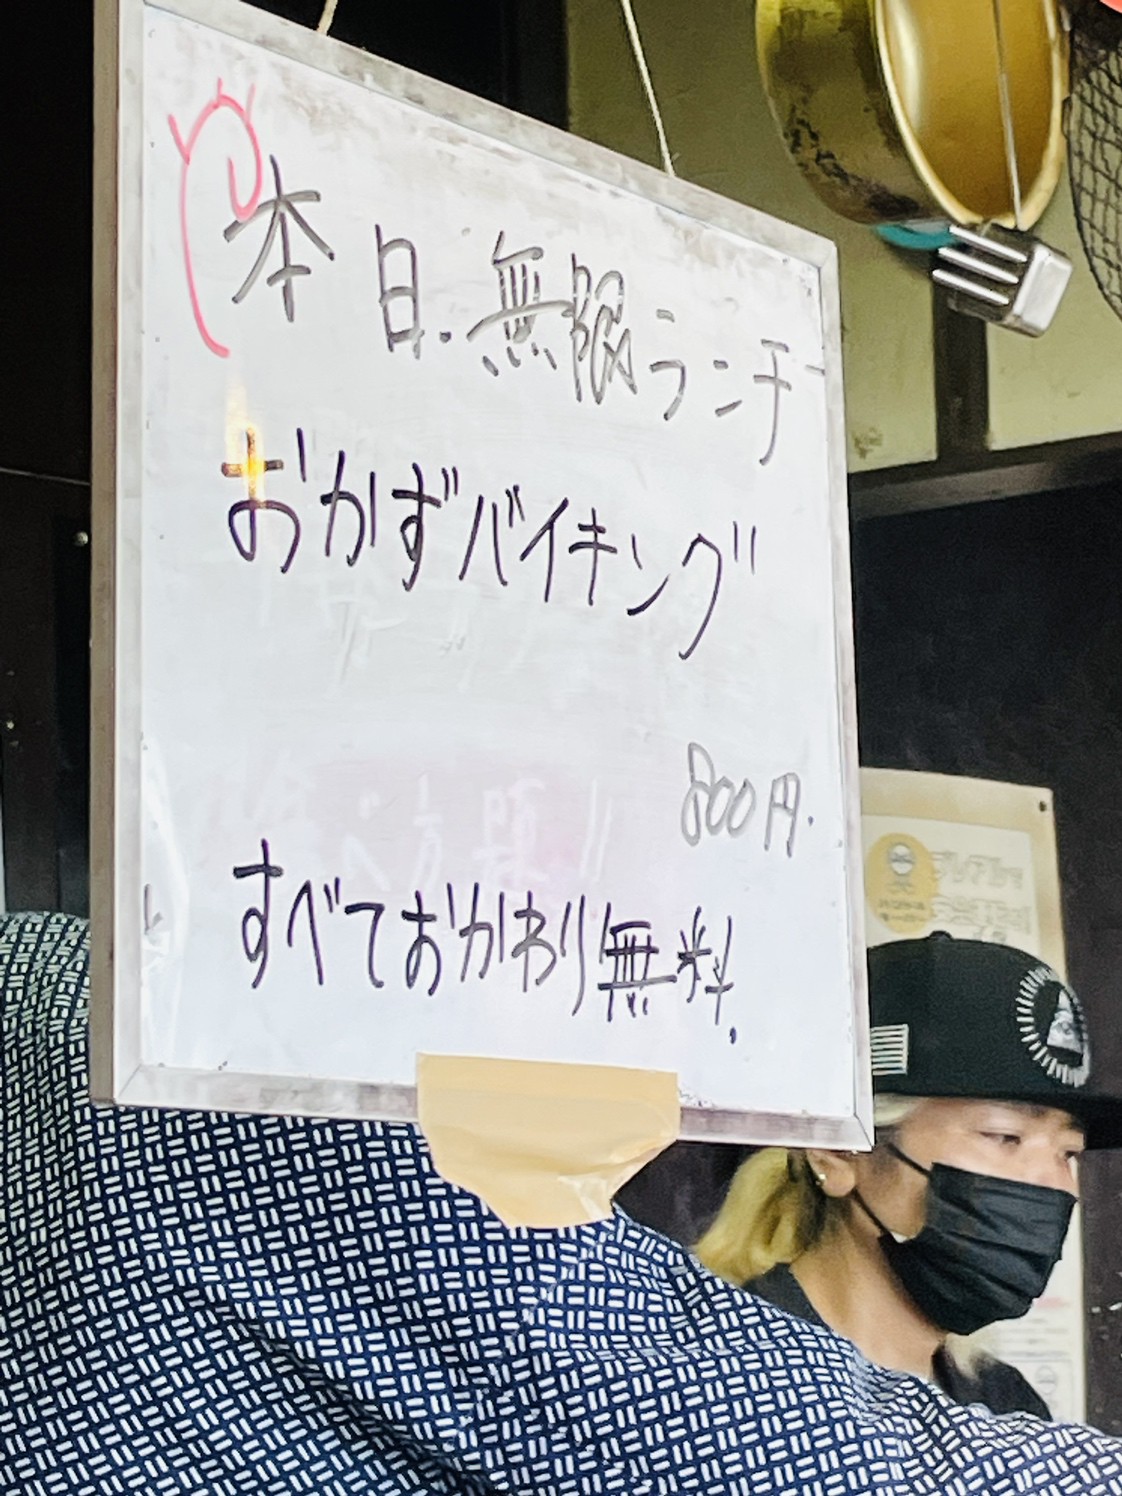 本日.無限ランチー
おかずバイキング
800円.
すべておかわり無料.